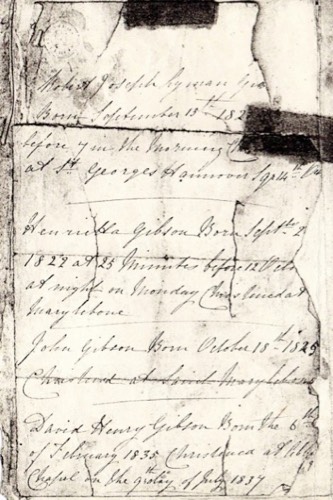 Robert Joseph Lyman
Born September 13th 182
before 7 in the Morning
at St Georges Hannover Sqr 4th
Henrietta Gibson Born Septbr 2
1822 at 25 Minutes before 12 O
at night on Monday Christined at
Marylebone
John Gibson Born October 18th 1825
Christined at Saint Marylebone
David Henry Gibson Born the 6th
of February 1835 Christened at
Chapel on the 9th day of July 1837